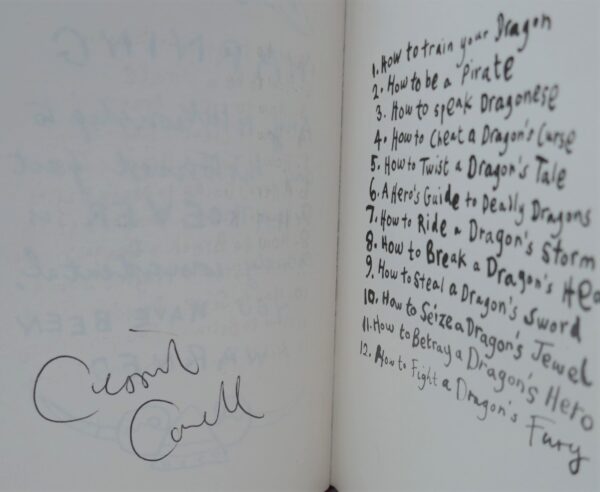 Cressida
Cowell
1. How to train your Dragon
2. How to be a Pirate
3. How to speak Dragonese
4. How to Cheat a Dragon's Curse
5. How to Twist a Dragon's Tale
6. A Hero's Guide to Deadly Dragons
7. How to Ride a Dragon's Storm
8. How to Break a Dragon's Hea
9. How to Steal a Dragon's Sword
10. How to Seize a Dragon's Jewel
11. How to Betray a Dragon's Hero
12. How to Fight a Dragon's Fury